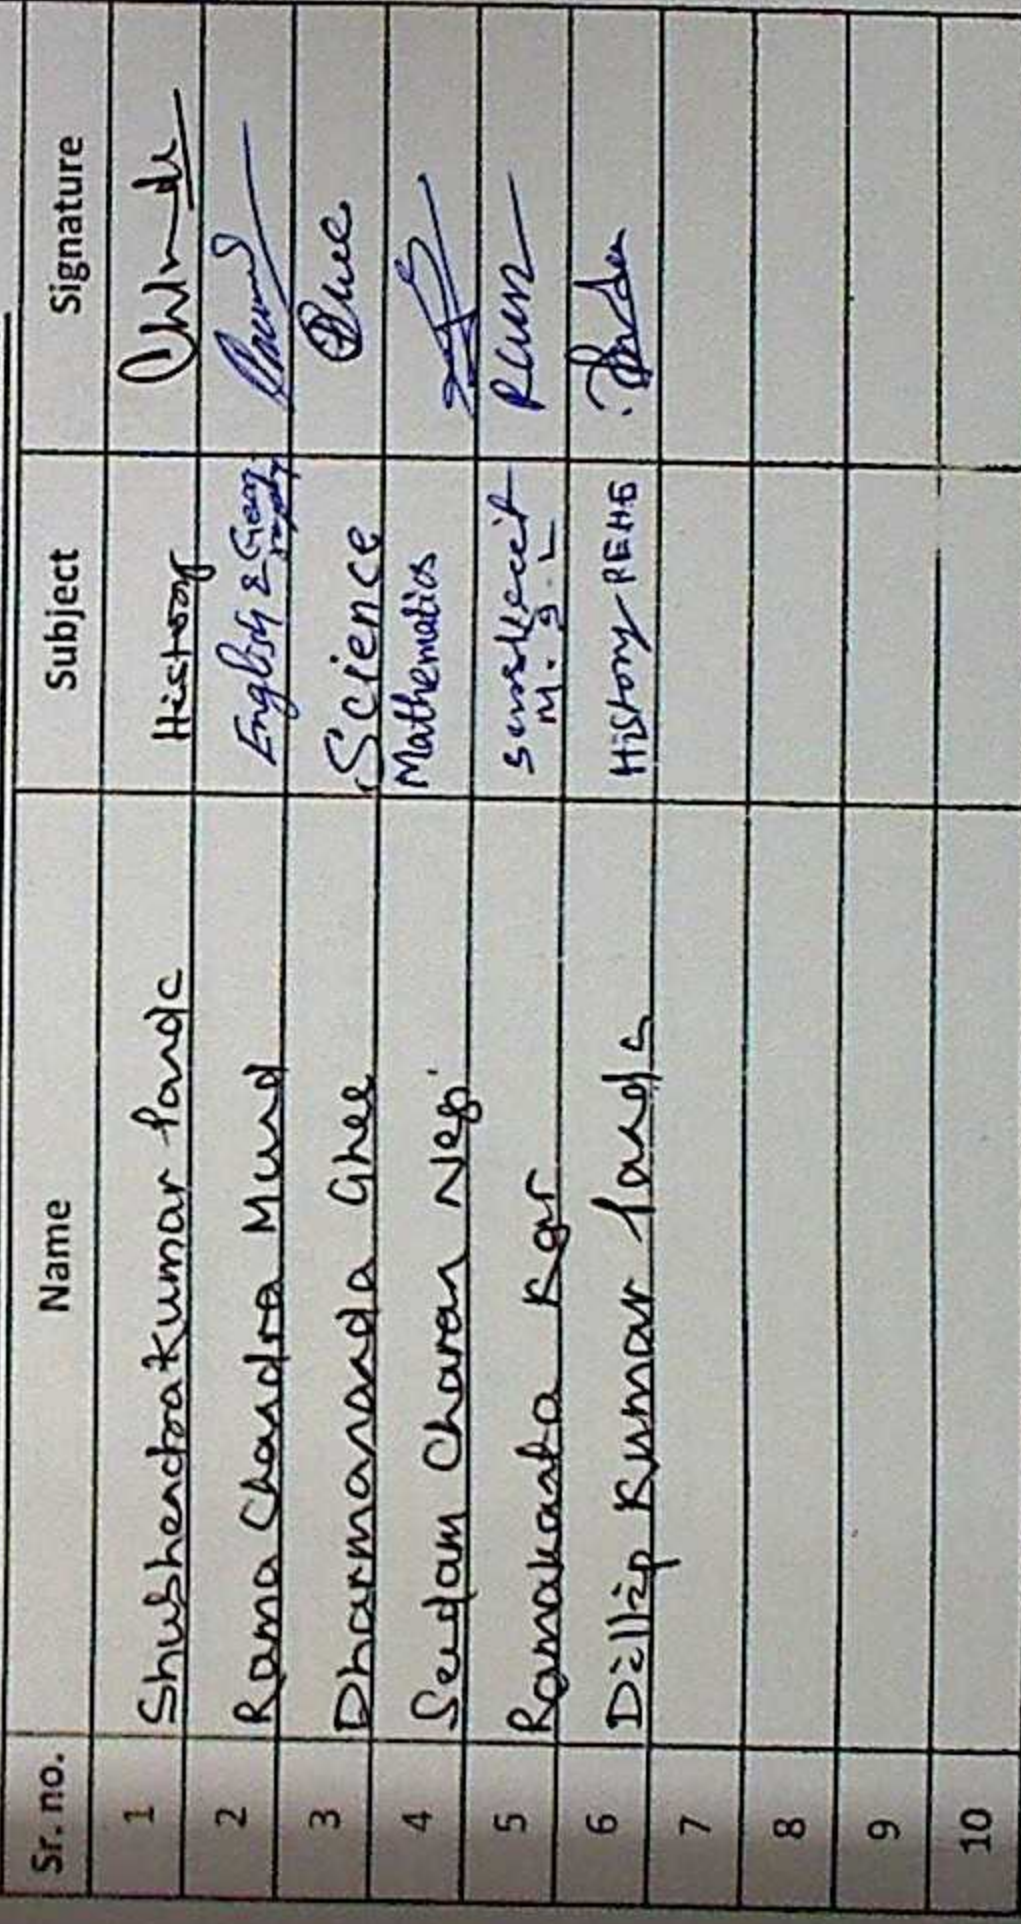 Sr. no. Name Subject Signature
1 Shushendrakumar Panda History
2 Rama Chandra Mund English & Geography
3 Dharmananda Ghee Science
4 Sudam Charan Negi Mathematics
5 Ramakanta Kar
6 Dillip Kumar Panda History PEHE
7
8
9
10